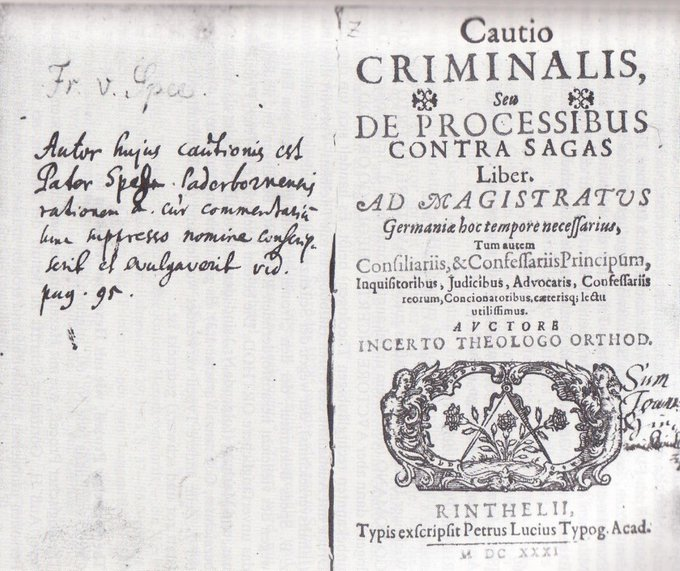 Fr. v. Spee.
Autor hujus cautionis est
Pater Spee. Paderbornensis
rationem cur commentariū
suppresso nomine conscrip-
serit et evulgaverit vid.
pag. 95.
Z
Cautio
CRIMINALIS,
Seu
DE PROCESSIBUS
CONTRA SAGAS
Liber.
AD MAGISTRATVS
Germaniæ hoc tempore necessarius,
Tum autem
Consiliariis, & Confessariis Principum,
Inquisitoribus, Judicibus, Advocatis, Confessariis
reorum, Concionatoribus, cæterisq; lectu
utilissimus.
AVCTORE
INCERTO THEOLOGO ORTHOD.
Sum
RINTHELII,
Typis exscripsit Petrus Lucius Typog. Acad.
M DC XXXI